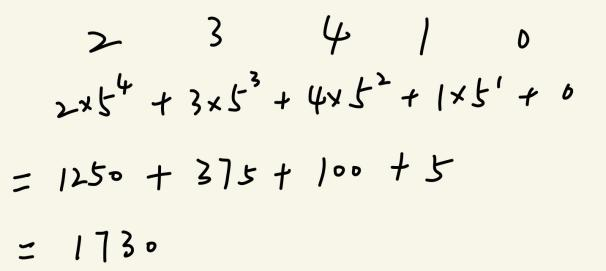 2 3 4 1 0
2×5⁴ + 3×5³ + 4×5² + 1×5¹ + 0
= 1250 + 375 + 100 + 5
= 1730